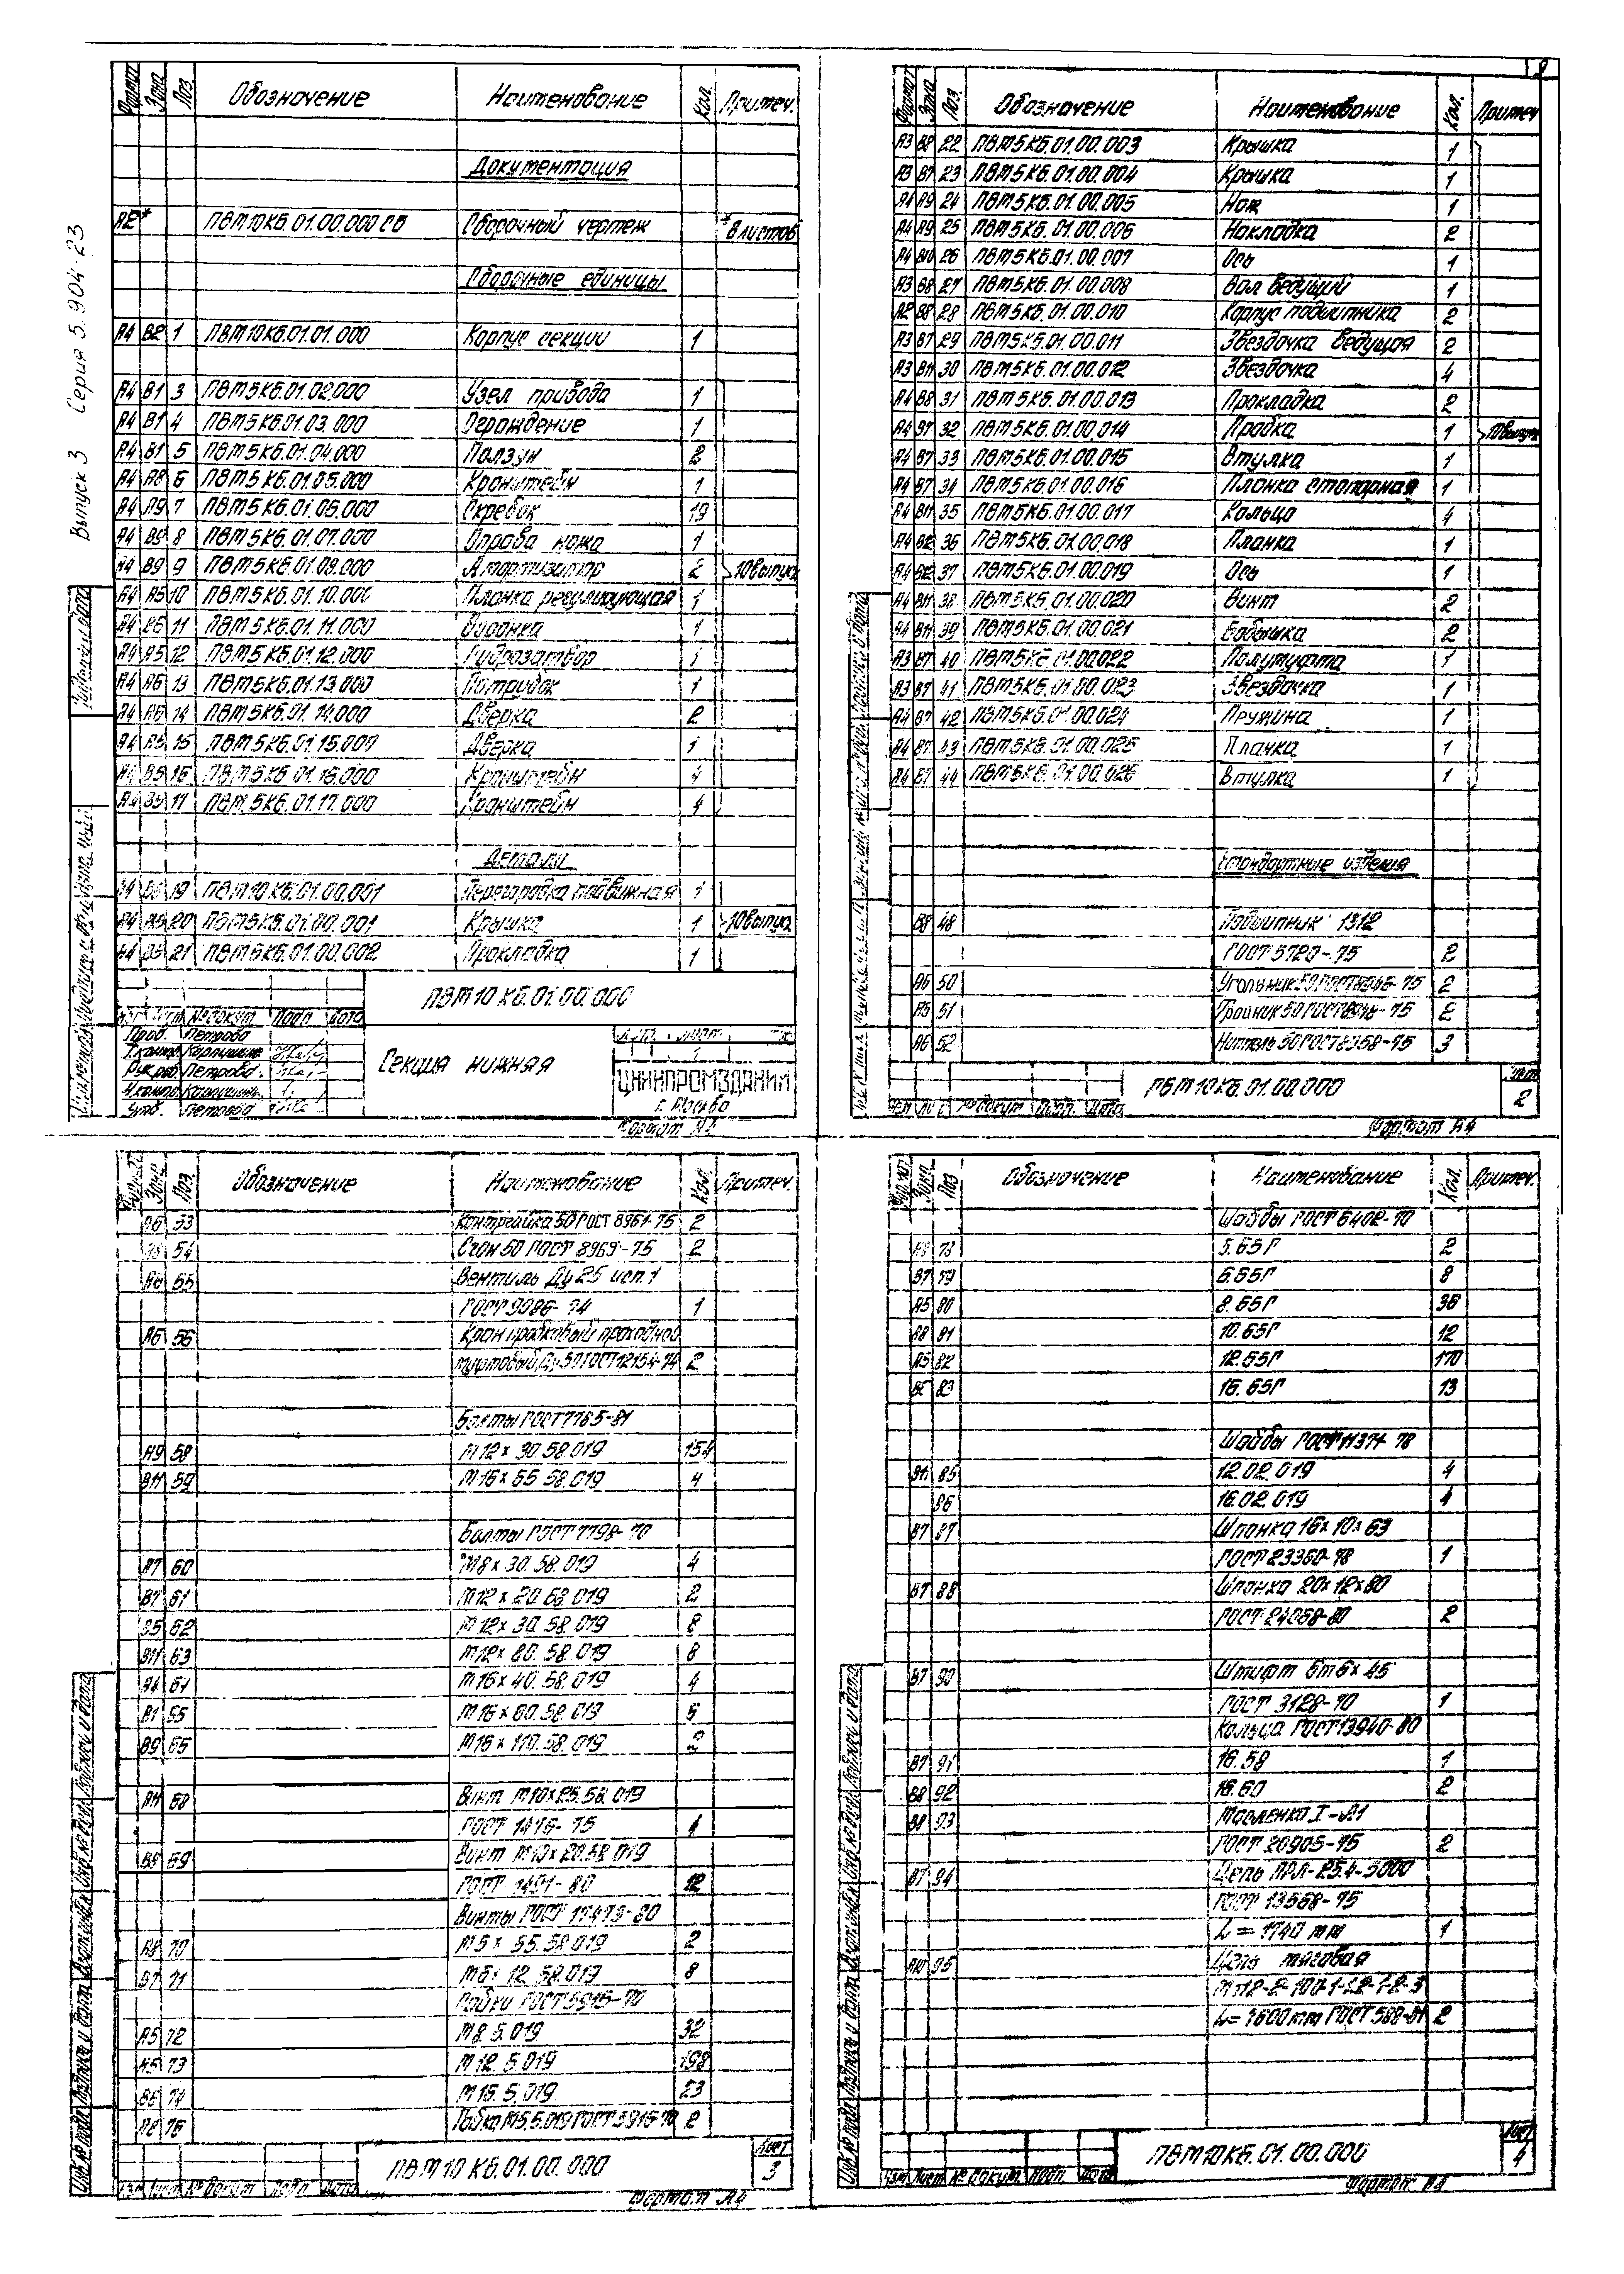 Выпуск 3 Серия 5.904-23
9
Формат Зона Поз Обозначение Наименование Кол. Примеч.
Документация
А2* ПВМ10КБ.01.00.000 СБ Сборочный чертеж *8 листов
Сборочные единицы
А4 В2 1 ПВМ10КБ.01.01.000 Корпус секции 1
А4 В1 3 ПВМ5КБ.01.02.000 Узел привода 1
А4 В1 4 ПВМ5КБ.01.03.000 Ограждение 1
А4 В1 5 ПВМ5КБ.01.04.000 Ползун 2
А4 А8 6 ПВМ5КБ.01.05.000 Кронштейн 1
А4 А9 7 ПВМ5КБ.01.06.000 Скребок 19
А4 В9 8 ПВМ5КБ.01.07.000 Оправа ножа 1
А4 В9 9 ПВМ5КБ.01.09.000 Амортизатор 2 } 10выпуск
А4 А5 10 ПВМ5КБ.01.10.000 Планка регулирующая 1
А4 11 ПВМ5КБ.01.11.000 1
А4 12 ПВМ5КБ.01.12.000 Гидрозатвор 1
А4 А6 13 ПВМ5КБ.01.13.000 Патрубок 1
А4 А6 14 ПВМ5КБ.01.14.000 Дверка 2
А4 15 ПВМ5КБ.01.15.000 Дверка 1
А4 В5 16 ПВМ5КБ.01.16.000 Кронштейн 4
А4 В5 17 ПВМ5КБ.01.17.000 Кронштейн 4
Детали
А4 19 ПВМ10КБ.01.00.001 Перегородка подвижная 1
А4 А5 20 ПВМ5КБ.01.00.001 Крышка 1 } 10выпуск
А4 21 ПВМ5КБ.01.00.002 Прокладка 1
ПВМ10КБ.01.00.000
Изм Лист №докум. Подп. Дата
Проб. Петрова
Т.контр. Карпушкин
Рук.раб. Петрова
Н.контр. Карпушкин
Утв. Петрова
Секция нижняя
Лит. Лист
1
ЦНИИПРОМЗДАНИЙ
г. Москва
Формат А4
Формат Зона Поз Обозначение Наименование Кол. Примеч
А3 В8 22 ПВМ5КБ.01.00.003 Крышка 1
А3 В7 23 ПВМ5КБ.01.00.004 Крышка 1
А4 А9 24 ПВМ5КБ.01.00.005 Нож 1
А4 А9 25 ПВМ5КБ.01.00.006 Накладка 2
А4 В10 26 ПВМ5КБ.01.00.007 Ось 1
А3 В8 27 ПВМ5КБ.01.00.008 Вал ведущий 1
А2 В8 28 ПВМ5КБ.01.00.010 Корпус подшипника 2
А3 В7 29 ПВМ5КБ.01.00.011 Звездочка ведущая 2
А3 В11 30 ПВМ5КБ.01.00.012 Звездочка 4
А4 В8 31 ПВМ5КБ.01.00.013 Прокладка 2
А4 В7 32 ПВМ5КБ.01.00.014 Пробка 1 } 10выпуск
А4 В7 33 ПВМ5КБ.01.00.015 Втулка 1
А4 В7 34 ПВМ5КБ.01.00.016 Планка стопорная 1
А4 В11 35 ПВМ5КБ.01.00.017 Кольцо 4
А4 В12 36 ПВМ5КБ.01.00.018 Планка 1
А4 В12 37 ПВМ5КБ.01.00.019 Ось 1
А4 В11 38 ПВМ5КБ.01.00.020 Винт 2
А4 В11 39 ПВМ5КБ.01.00.021 Бобышка 2
А3 В7 40 ПВМ5КБ.01.00.022 Полумуфта 1
А3 В7 41 ПВМ5КБ.01.00.023 Звездочка 1
А4 В7 42 ПВМ5КБ.01.00.024 Пружина 1
А4 В7 43 ПВМ5КБ.01.00.025 Планка 1
А4 В7 44 ПВМ5КБ.01.00.026 Втулка 1
Стандартные изделия
В8 48 Подшипник 1312
ГОСТ 5720-75 2
А6 50 Угольник 50 ГОСТ8946-75 2
А6 51 Тройник 50 ГОСТ8948-75 2
А6 52 Ниппель 50 ГОСТ8958-75 3
Изм Лист №докум Подп. Дата
ПВМ10КБ.01.00.000
Лист
2
Формат А4
Формат Зона Поз Обозначение Наименование Кол. Примеч.
53 Контргайка 50 ГОСТ 8961-75 2
54 Сгон 50 ГОСТ 8969-75 2
А6 55 Вентиль Ду 25 исп.1
ГОСТ 9086-74 1
А6 56 Кран пробковый проходной
муфтовый Ду 50 ГОСТ12154-74 2
Болты ГОСТ 7785-81
А9 58 М12×30.58.019 154
В11 59 М16×65.58.019 4
Болты ГОСТ 7798-70
А7 60 М8×30.58.019 4
В7 61 М12×20.58.019 2
62 М12×30.58.019 8
В11 63 М12×80.58.019 8
А4 64 М16×40.58.019 4
В1 65 М16×60.58.019 5
В9 66 М16×110.58.019 2
68 Винт М10×25.58.019
ГОСТ 1476-75 4
В8 69 Винт М10×20.58.019
ГОСТ 1491-80 12
Винты ГОСТ 17473-80
А8 70 М5×55.58.019 2
В7 71 М6×12.58.019 8
Гайки ГОСТ 5915-70
А5 72 М8.5.019 32
А5 73 М12.5.019 198
В6 74 М16.5.019 23
А8 75 Гайка М5.5.019 ГОСТ 5916-70 2
Изм Лист №докум Подп. Дата
ПВМ10КБ.01.00.000
Лист
3
Формат А4
Формат Зона Поз Обозначение Наименование Кол. Примеч.
Шайбы ГОСТ 6402-70
А8 78 5.65Г 2
В7 79 6.65Г 8
А5 80 8.65Г 36
А8 81 10.65Г 12
А5 82 12.65Г 170
В6 83 16.65Г 13
Шайбы ГОСТ 11371-78
В11 85 12.02.019 4
86 16.02.019 4
В7 87 Шпонка 16×10×63
ГОСТ 23360-78 1
В7 88 Шпонка 20×12×80
ГОСТ 24068-80 2
В7 90 Штифт 6m6×45
ГОСТ 3128-70 1
Кольца ГОСТ 13940-80
В7 91 1б.58 1
В8 92 1б.60 2
В8 93 Масленка I-А1
ГОСТ 20905-75 2
В7 94 Цепь ПРЛ-25.4-5000
ГОСТ 13568-75
L=1740 mm 1
А10 95 Цепь тяговая
М112-2-100-1-1.2-1-2-3
L=7600 mm ГОСТ 588-81 2
Изм Лист №докум. Подп. Дата
ПВМ10КБ.01.00.000
Лист
4
Формат А4